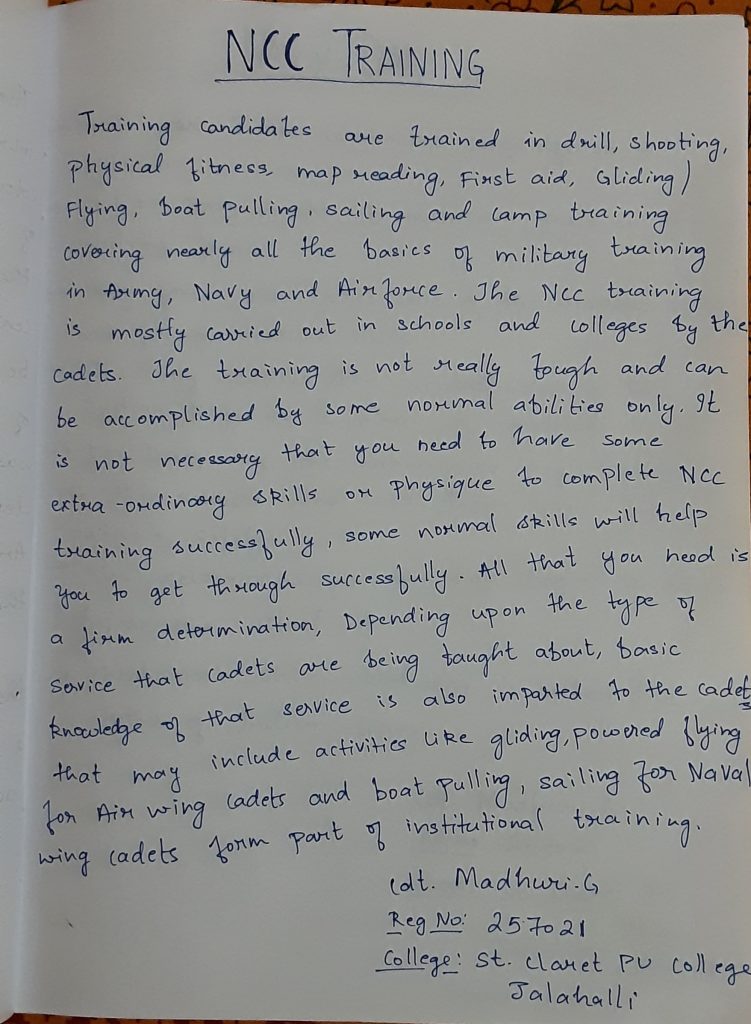 NCC TRAINING
Training candidates are trained in drill, shooting,
physical fitness, map reading, First aid, Gliding /
Flying, boat pulling, sailing and camp training
covering nearly all the basics of military training
in Army, Navy and Airforce. The NCC training
is mostly carried out in schools and colleges by the
cadets. The training is not really tough and can
be accomplished by some normal abilities only. It
is not necessary that you need to have some
extra-ordinary skills or physique to complete NCC
training successfully, some normal skills will help
you to get through successfully. All that you need is
a firm determination, Depending upon the type of
service that cadets are being taught about, basic
knowledge of that service is also imparted to the cadets
that may include activities like gliding, powered flying
for Air wing cadets and boat pulling, sailing for Naval
wing cadets form part of institutional training.
Cdt. Madhuri.G
Reg No: 257021
College: St. Claret PU college
Jalahalli